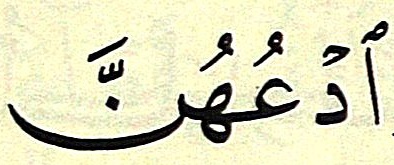 ٱدۡعُهُنَّ